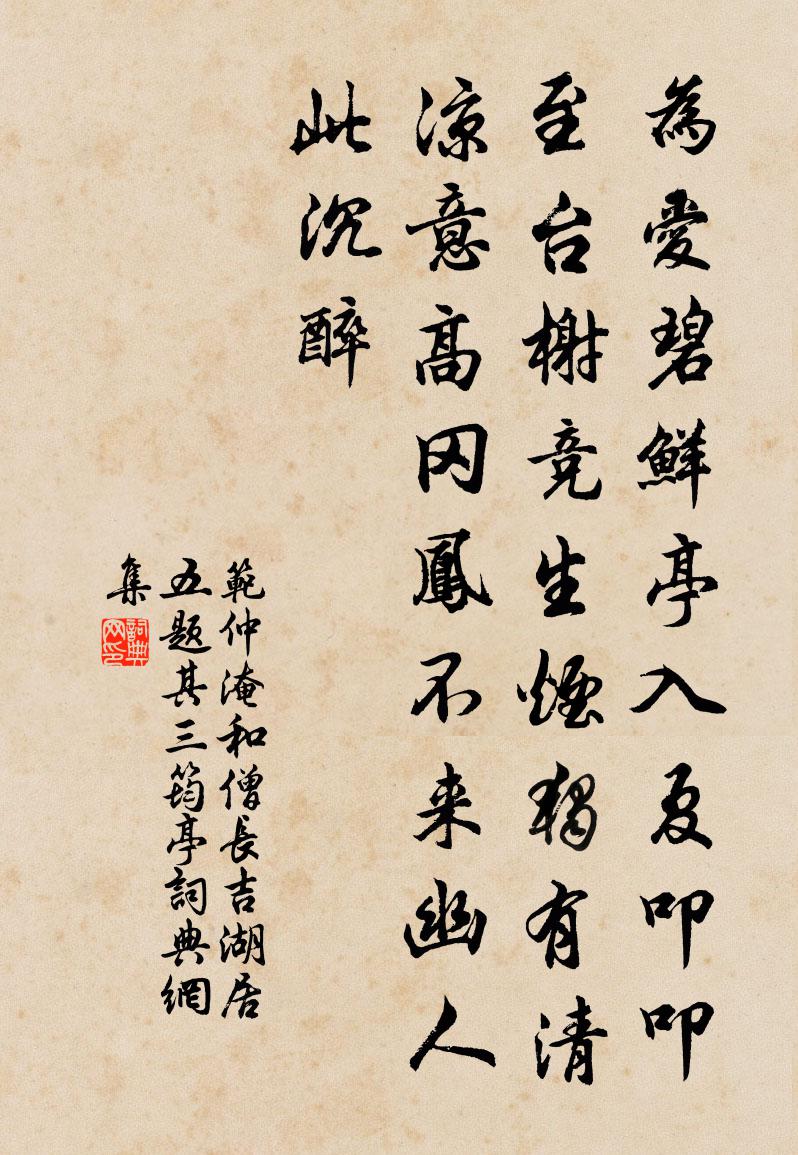 為愛碧鮮亭入夏叩叩
至台榭竞生煙獨有清
凉意高冈鳳不来幽人
此沉醉
範仲淹和僧長吉湖居
五题其三筠亭詞典網
集
詞典
网印